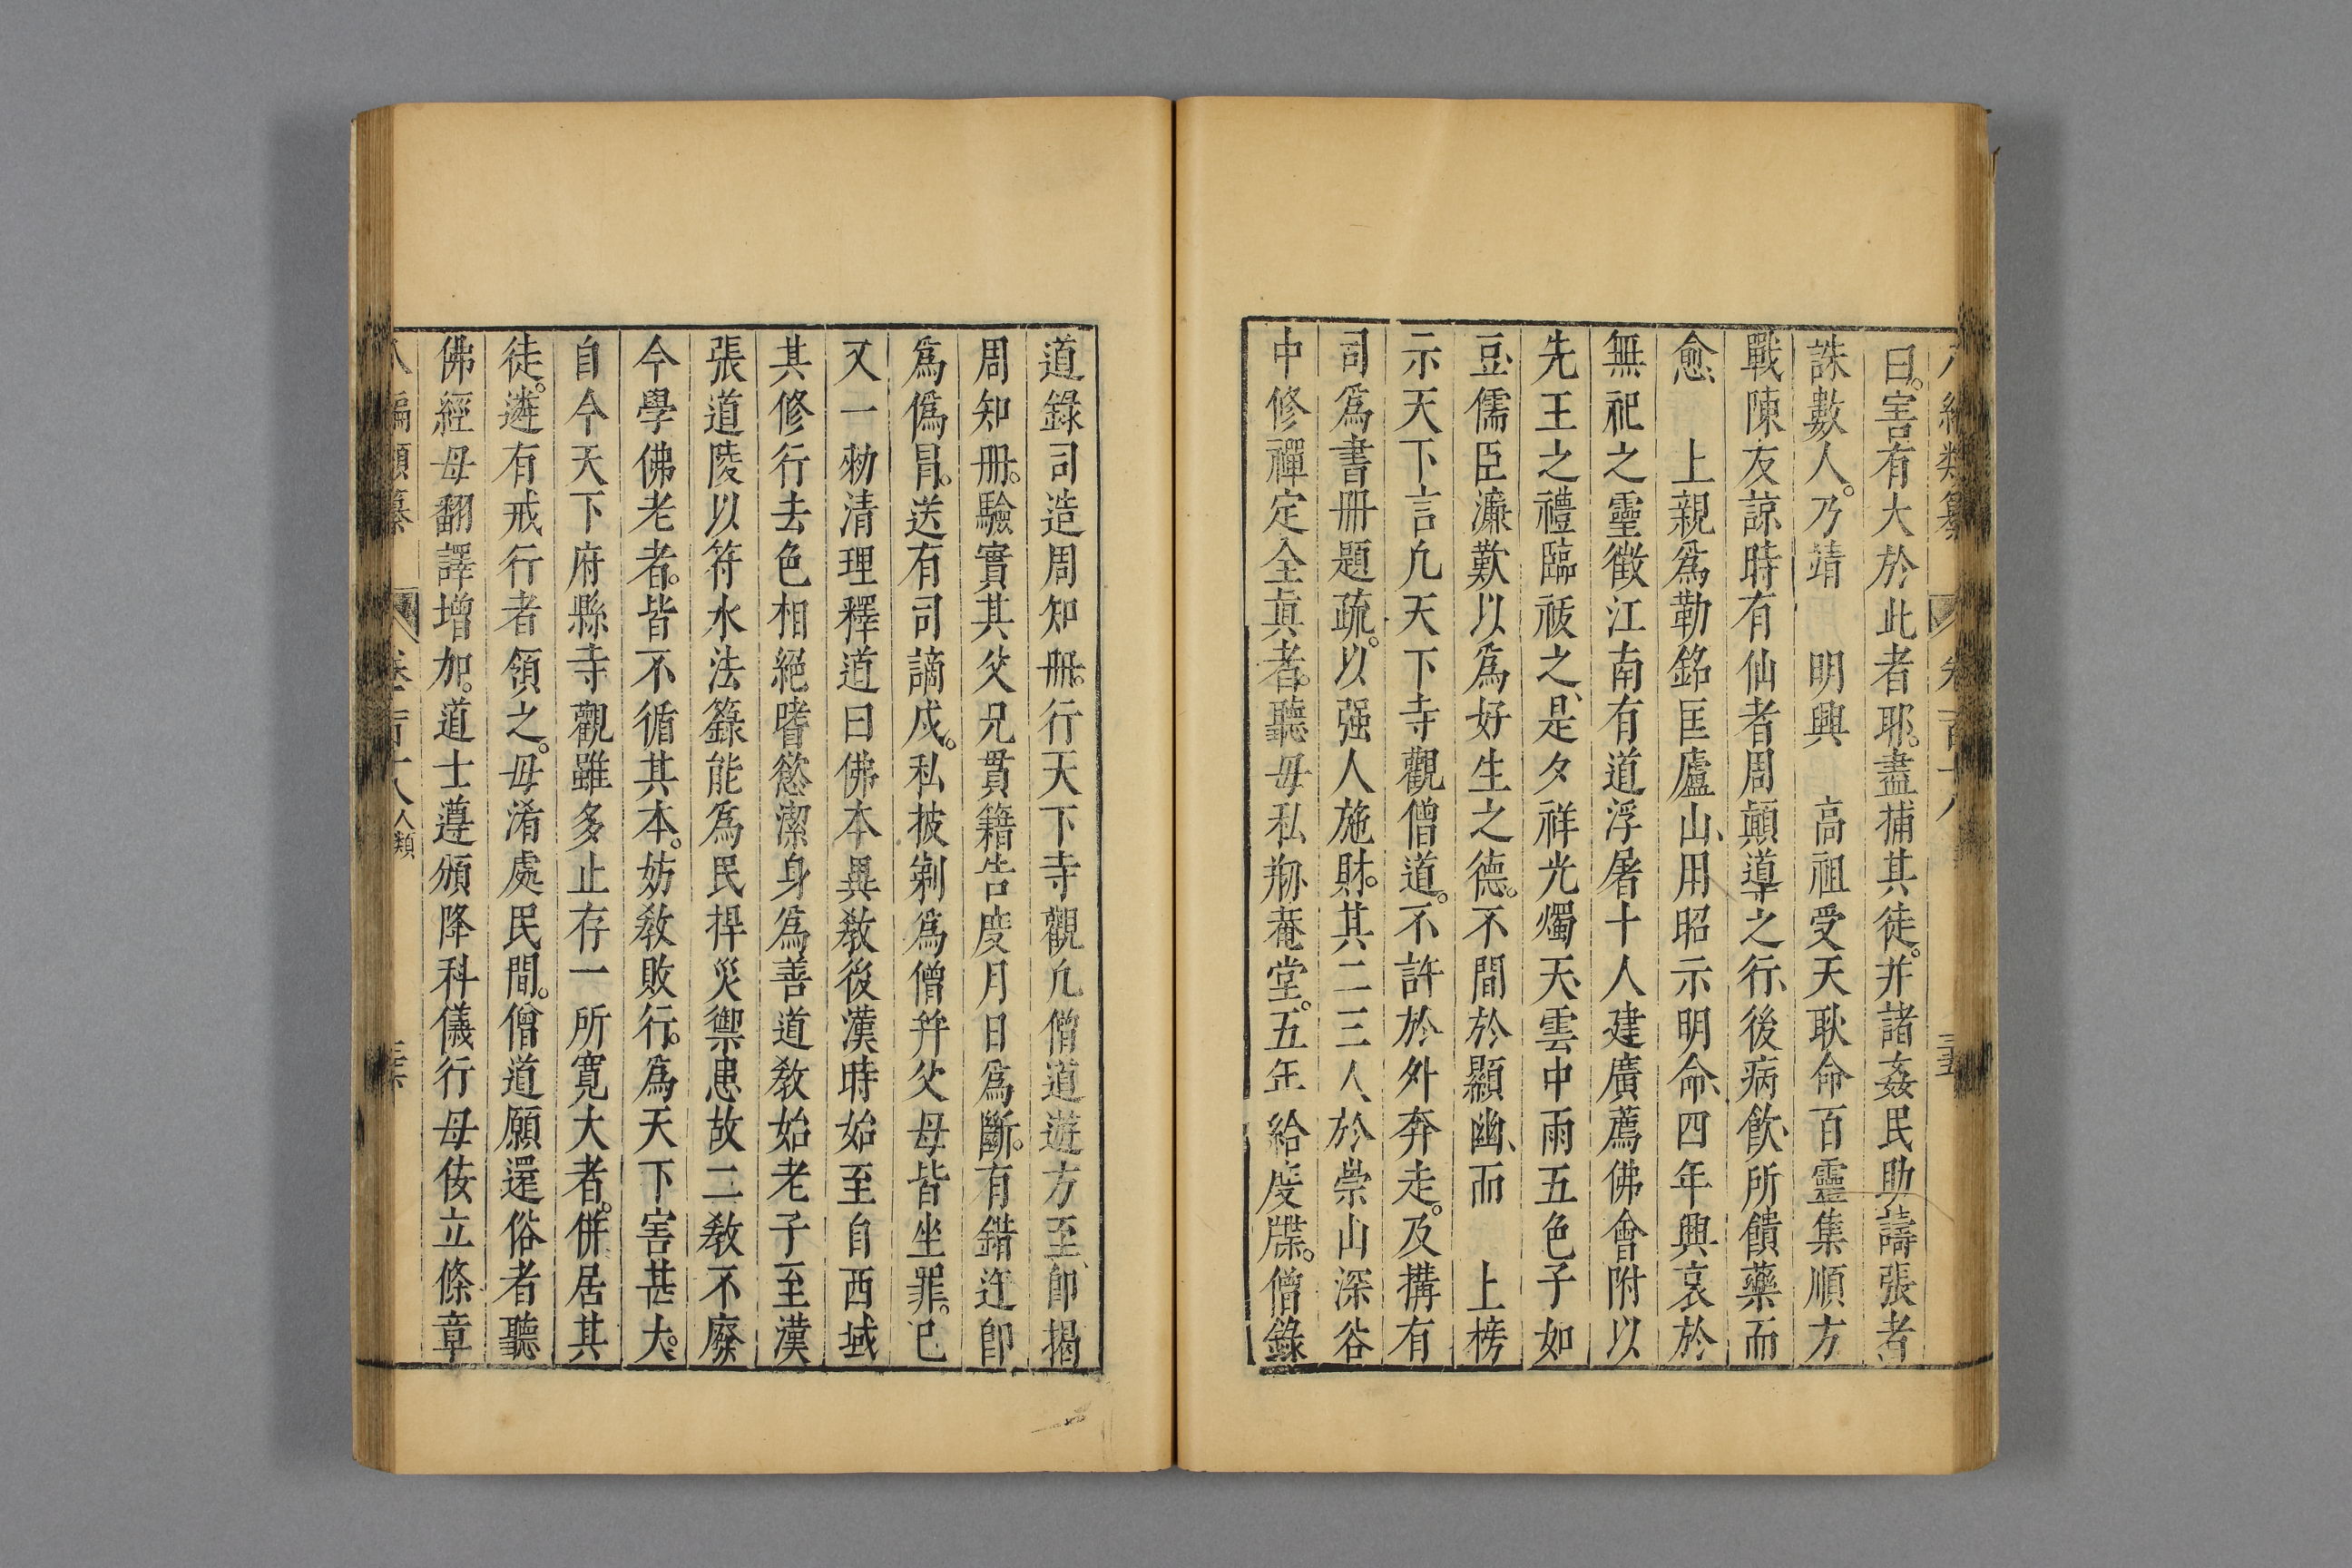 八編類纂 卷一百十八 三五
曰。害有大於此者耶。盡捕其徒。并諸姦民助譸張者
誅數人。乃靖 明興 高祖受天耿命百靈集順方
戰陳友諒時有仙者周顚導之行、後病飲、所饋藥而
愈、 上親爲勒銘匡廬山、用昭示明命、四年興哀於
無祀之靈徵江南有道浮屠十人建廣薦佛會附以
先王之禮臨祓之、是夕祥光燭天、雲中雨五色子如
豆、儒臣濂歎以爲好生之德。不間於顯幽、而 上榜
示天下言凢天下寺觀僧道。不許於外奔走。及搆有
司爲書冊題疏。以强人施財。其二三人、於崇山深谷
中修禪定全眞者。聽毋私剏菴堂。五年 給度牒。僧錄
道錄司造周知冊。行天下寺觀凢僧道遊方至、卽揭
周知冊。驗實其父兄貫籍告度月日爲斷。有錯迕卽
爲僞冒。送有司謫戍。私披剃爲僧幷父母皆坐罪。已
又一勑清理釋道曰佛本異敎後漢時始至自西域
其修行去色相絕嗜慾潔身爲善道敎始老子至漢
張道陵以符水法籙能爲民捍災禦患故二敎不廢
今學佛老者。皆不循其本。妨敎敗行。爲天下害甚大。
自今天下府縣寺觀雖多止存一所寬大者。併居其
徒。遴有戒行者領之。毋淆處民間。僧道願還俗者聽
佛經毋翻譯增加。道士遵頒降科儀行毋伎立條章
八編類纂 卷一百十八 人類